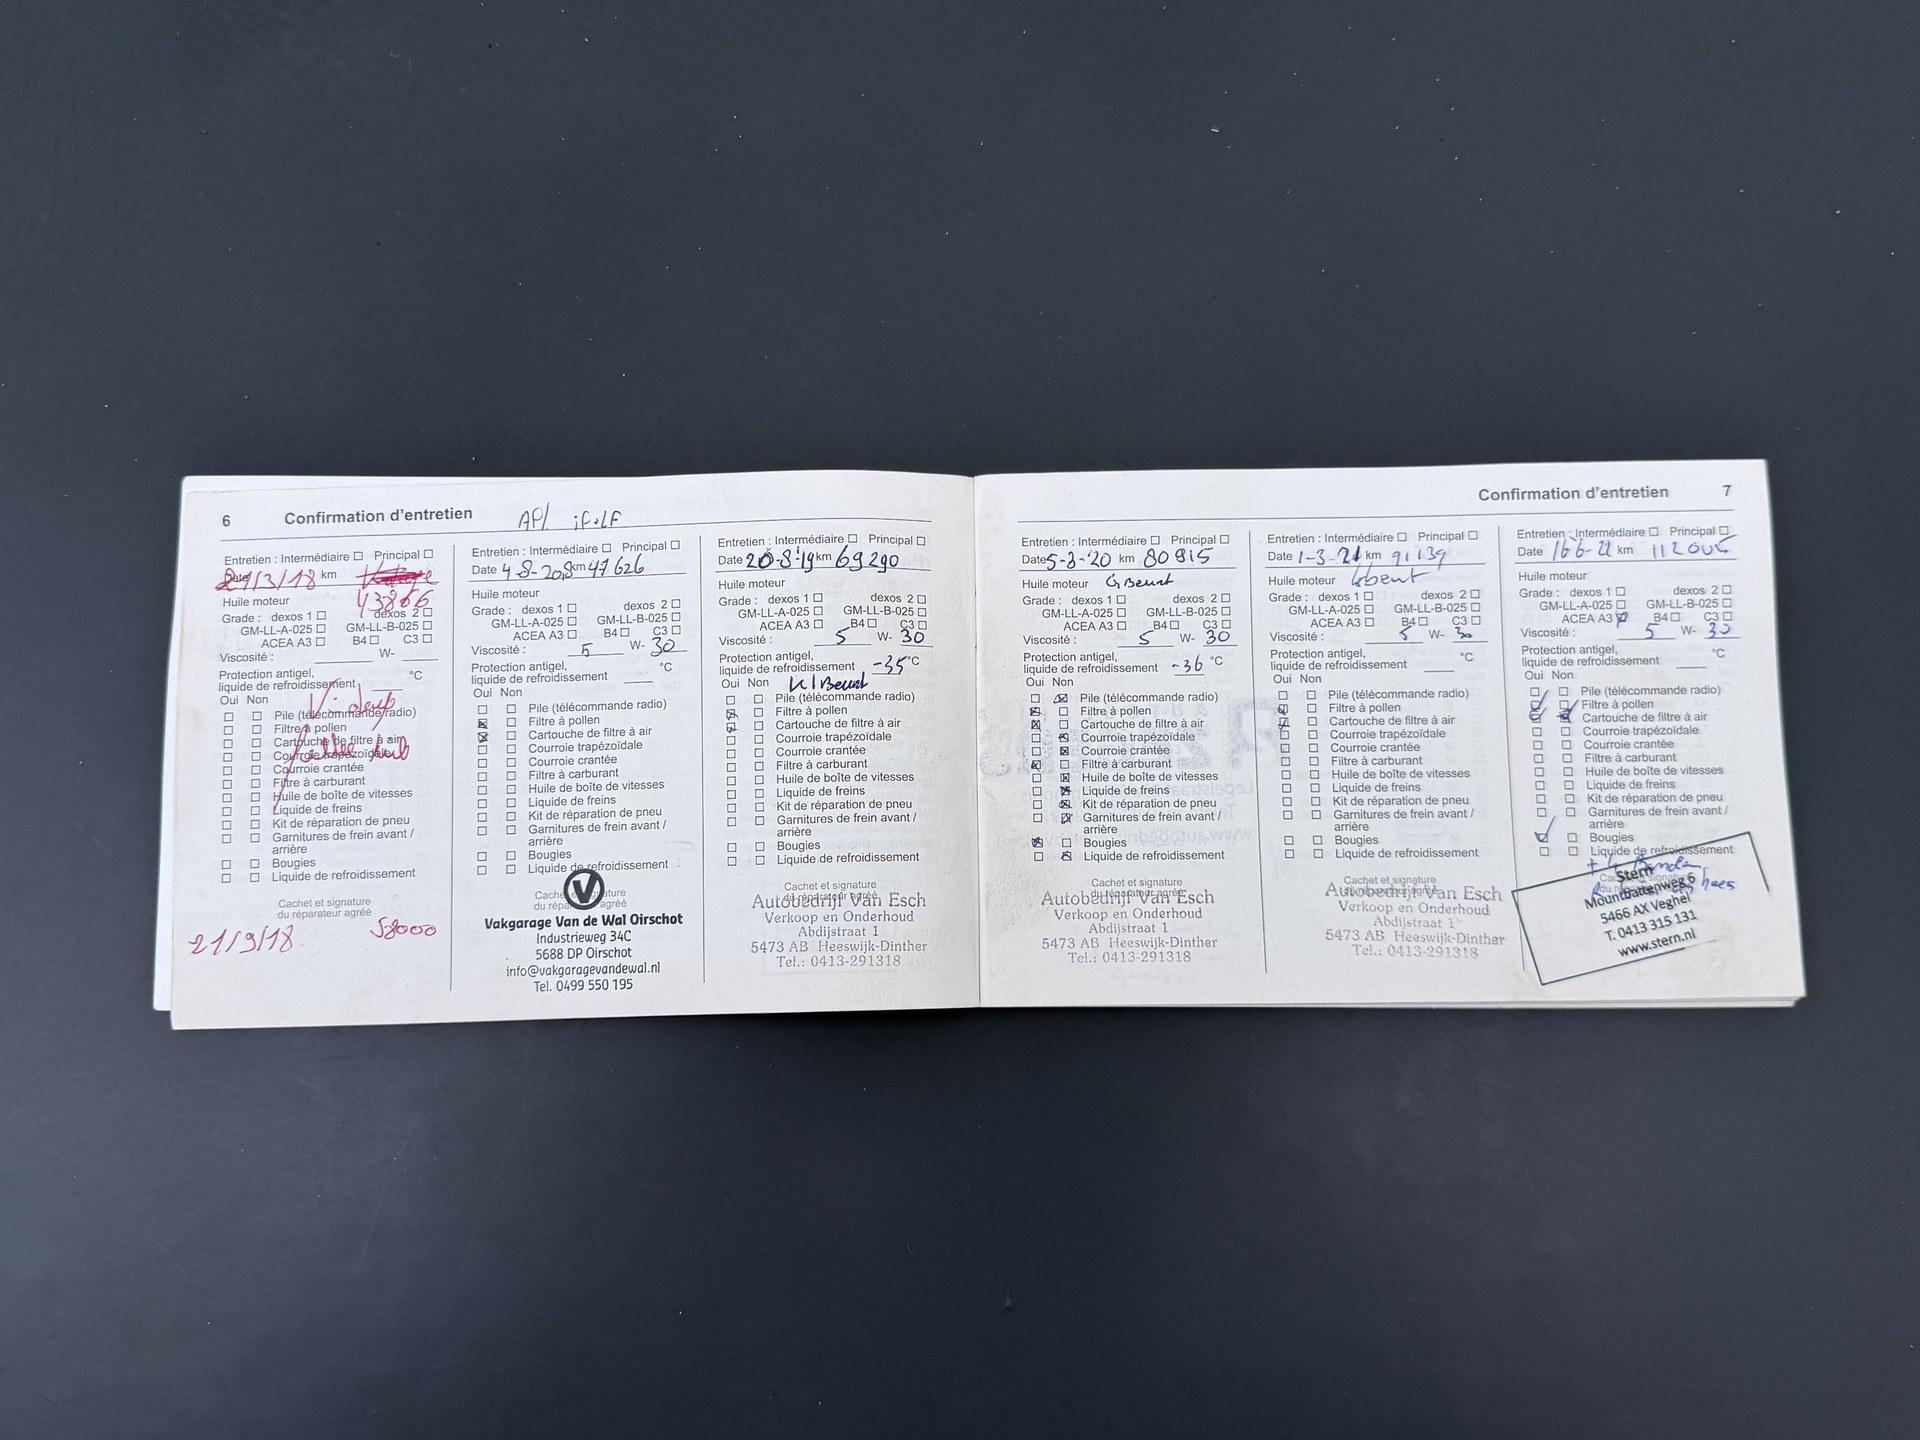 6 Confirmation d'entretien
Entretien : Intermédiaire ☐ Principal ☐
Date 21/3/18 km
43866
Huile moteur
Grade : dexos 1 ☐ dexos 2 ☐
GM-LL-A-025 ☐ GM-LL-B-025 ☐
ACEA A3 ☐ B4 ☐ C3 ☐
Viscosité : W-
Protection antigel,
liquide de refroidissement °C
Oui Non
Pile (télécommande radio)
Filtre à pollen
Cartouche de filtre à air
Courroie trapézoïdale
Courroie crantée
Filtre à carburant
Huile de boîte de vitesses
Liquide de freins
Kit de réparation de pneu
Garnitures de frein avant /
arrière
Bougies
Liquide de refroidissement
Cachet et signature
du réparateur agréé
21/9/18 58000
Entretien : Intermédiaire ☐ Principal ☐
Date 4-8-2018 km 47626
Huile moteur
Grade : dexos 1 ☐ dexos 2 ☐
GM-LL-A-025 ☐ GM-LL-B-025 ☐
ACEA A3 ☐ B4 ☐ C3 ☐
Viscosité : 5 W- 30
Protection antigel,
liquide de refroidissement °C
Oui Non
Pile (télécommande radio)
Filtre à pollen
Cartouche de filtre à air
Courroie trapézoïdale
Courroie crantée
Filtre à carburant
Huile de boîte de vitesses
Liquide de freins
Kit de réparation de pneu
Garnitures de frein avant /
arrière
Bougies
Liquide de refroidissement
Cachet et signature
du réparateur agréé
Vakgarage Van de Wal Oirschot
Industrieweg 34C
5688 DP Oirschot
info@vakgaragevandewal.nl
Tel. 0499 550 195
Entretien : Intermédiaire ☐ Principal ☐
Date 20-8-19 km 69290
Huile moteur
Grade : dexos 1 ☐ dexos 2 ☐
GM-LL-A-025 ☐ GM-LL-B-025 ☐
ACEA A3 ☐ B4 ☐ C3 ☐
Viscosité : 5 W- 30
Protection antigel,
liquide de refroidissement -35 °C
Oui Non
Pile (télécommande radio)
Filtre à pollen
Cartouche de filtre à air
Courroie trapézoïdale
Courroie crantée
Filtre à carburant
Huile de boîte de vitesses
Liquide de freins
Kit de réparation de pneu
Garnitures de frein avant /
arrière
Bougies
Liquide de refroidissement
Cachet et signature
du réparateur agréé
Autobedrijf Van Esch
Verkoop en Onderhoud
Abdijstraat 1
5473 AB Heeswijk-Dinther
Tel.: 0413-291318
Confirmation d'entretien 7
Entretien : Intermédiaire ☐ Principal ☐
Date 5-3-'20 km 80815
Huile moteur G Beurt
Grade : dexos 1 ☐ dexos 2 ☐
GM-LL-A-025 ☐ GM-LL-B-025 ☐
ACEA A3 ☐ B4 ☐ C3 ☐
Viscosité : 5 W- 30
Protection antigel,
liquide de refroidissement -36 °C
Oui Non
Pile (télécommande radio)
Filtre à pollen
Cartouche de filtre à air
Courroie trapézoïdale
Courroie crantée
Filtre à carburant
Huile de boîte de vitesses
Liquide de freins
Kit de réparation de pneu
Garnitures de frein avant /
arrière
Bougies
Liquide de refroidissement
Cachet et signature
du réparateur agréé
Autobedrijf Van Esch
Verkoop en Onderhoud
Abdijstraat 1
5473 AB Heeswijk-Dinther
Tel.: 0413-291318
Entretien : Intermédiaire ☐ Principal ☐
Date 1-3-21 km 91139
Huile moteur
Grade : dexos 1 ☐ dexos 2 ☐
GM-LL-A-025 ☐ GM-LL-B-025 ☐
ACEA A3 ☐ B4 ☐ C3 ☐
Viscosité : 5 W- 30
Protection antigel,
liquide de refroidissement °C
Oui Non
Pile (télécommande radio)
Filtre à pollen
Cartouche de filtre à air
Courroie trapézoïdale
Courroie crantée
Filtre à carburant
Huile de boîte de vitesses
Liquide de freins
Kit de réparation de pneu
Garnitures de frein avant /
arrière
Bougies
Liquide de refroidissement
Cachet et signature
Autobedrijf Van Esch
Verkoop en Onderhoud
Abdijstraat 1
5473 AB Heeswijk-Dinther
Tel.: 0413-291318
Entretien : Intermédiaire ☐ Principal ☐
Date km
Huile moteur
Grade : dexos 1 ☐ dexos 2 ☐
GM-LL-A-025 ☐ GM-LL-B-025 ☐
ACEA A3 B4 ☐ C3 ☐
Viscosité : 5 W- 30
Protection antigel,
liquide de refroidissement °C
Oui Non
Pile (télécommande radio)
Filtre à pollen
Cartouche de filtre à air
Courroie trapézoïdale
Courroie crantée
Filtre à carburant
Huile de boîte de vitesses
Liquide de freins
Kit de réparation de pneu
Garnitures de frein avant /
arrière
Bougies
Liquide de refroidissement
Stern
Mountbattenweg 6
5466 AX Veghel
T. 0413 315 131
www.stern.nl